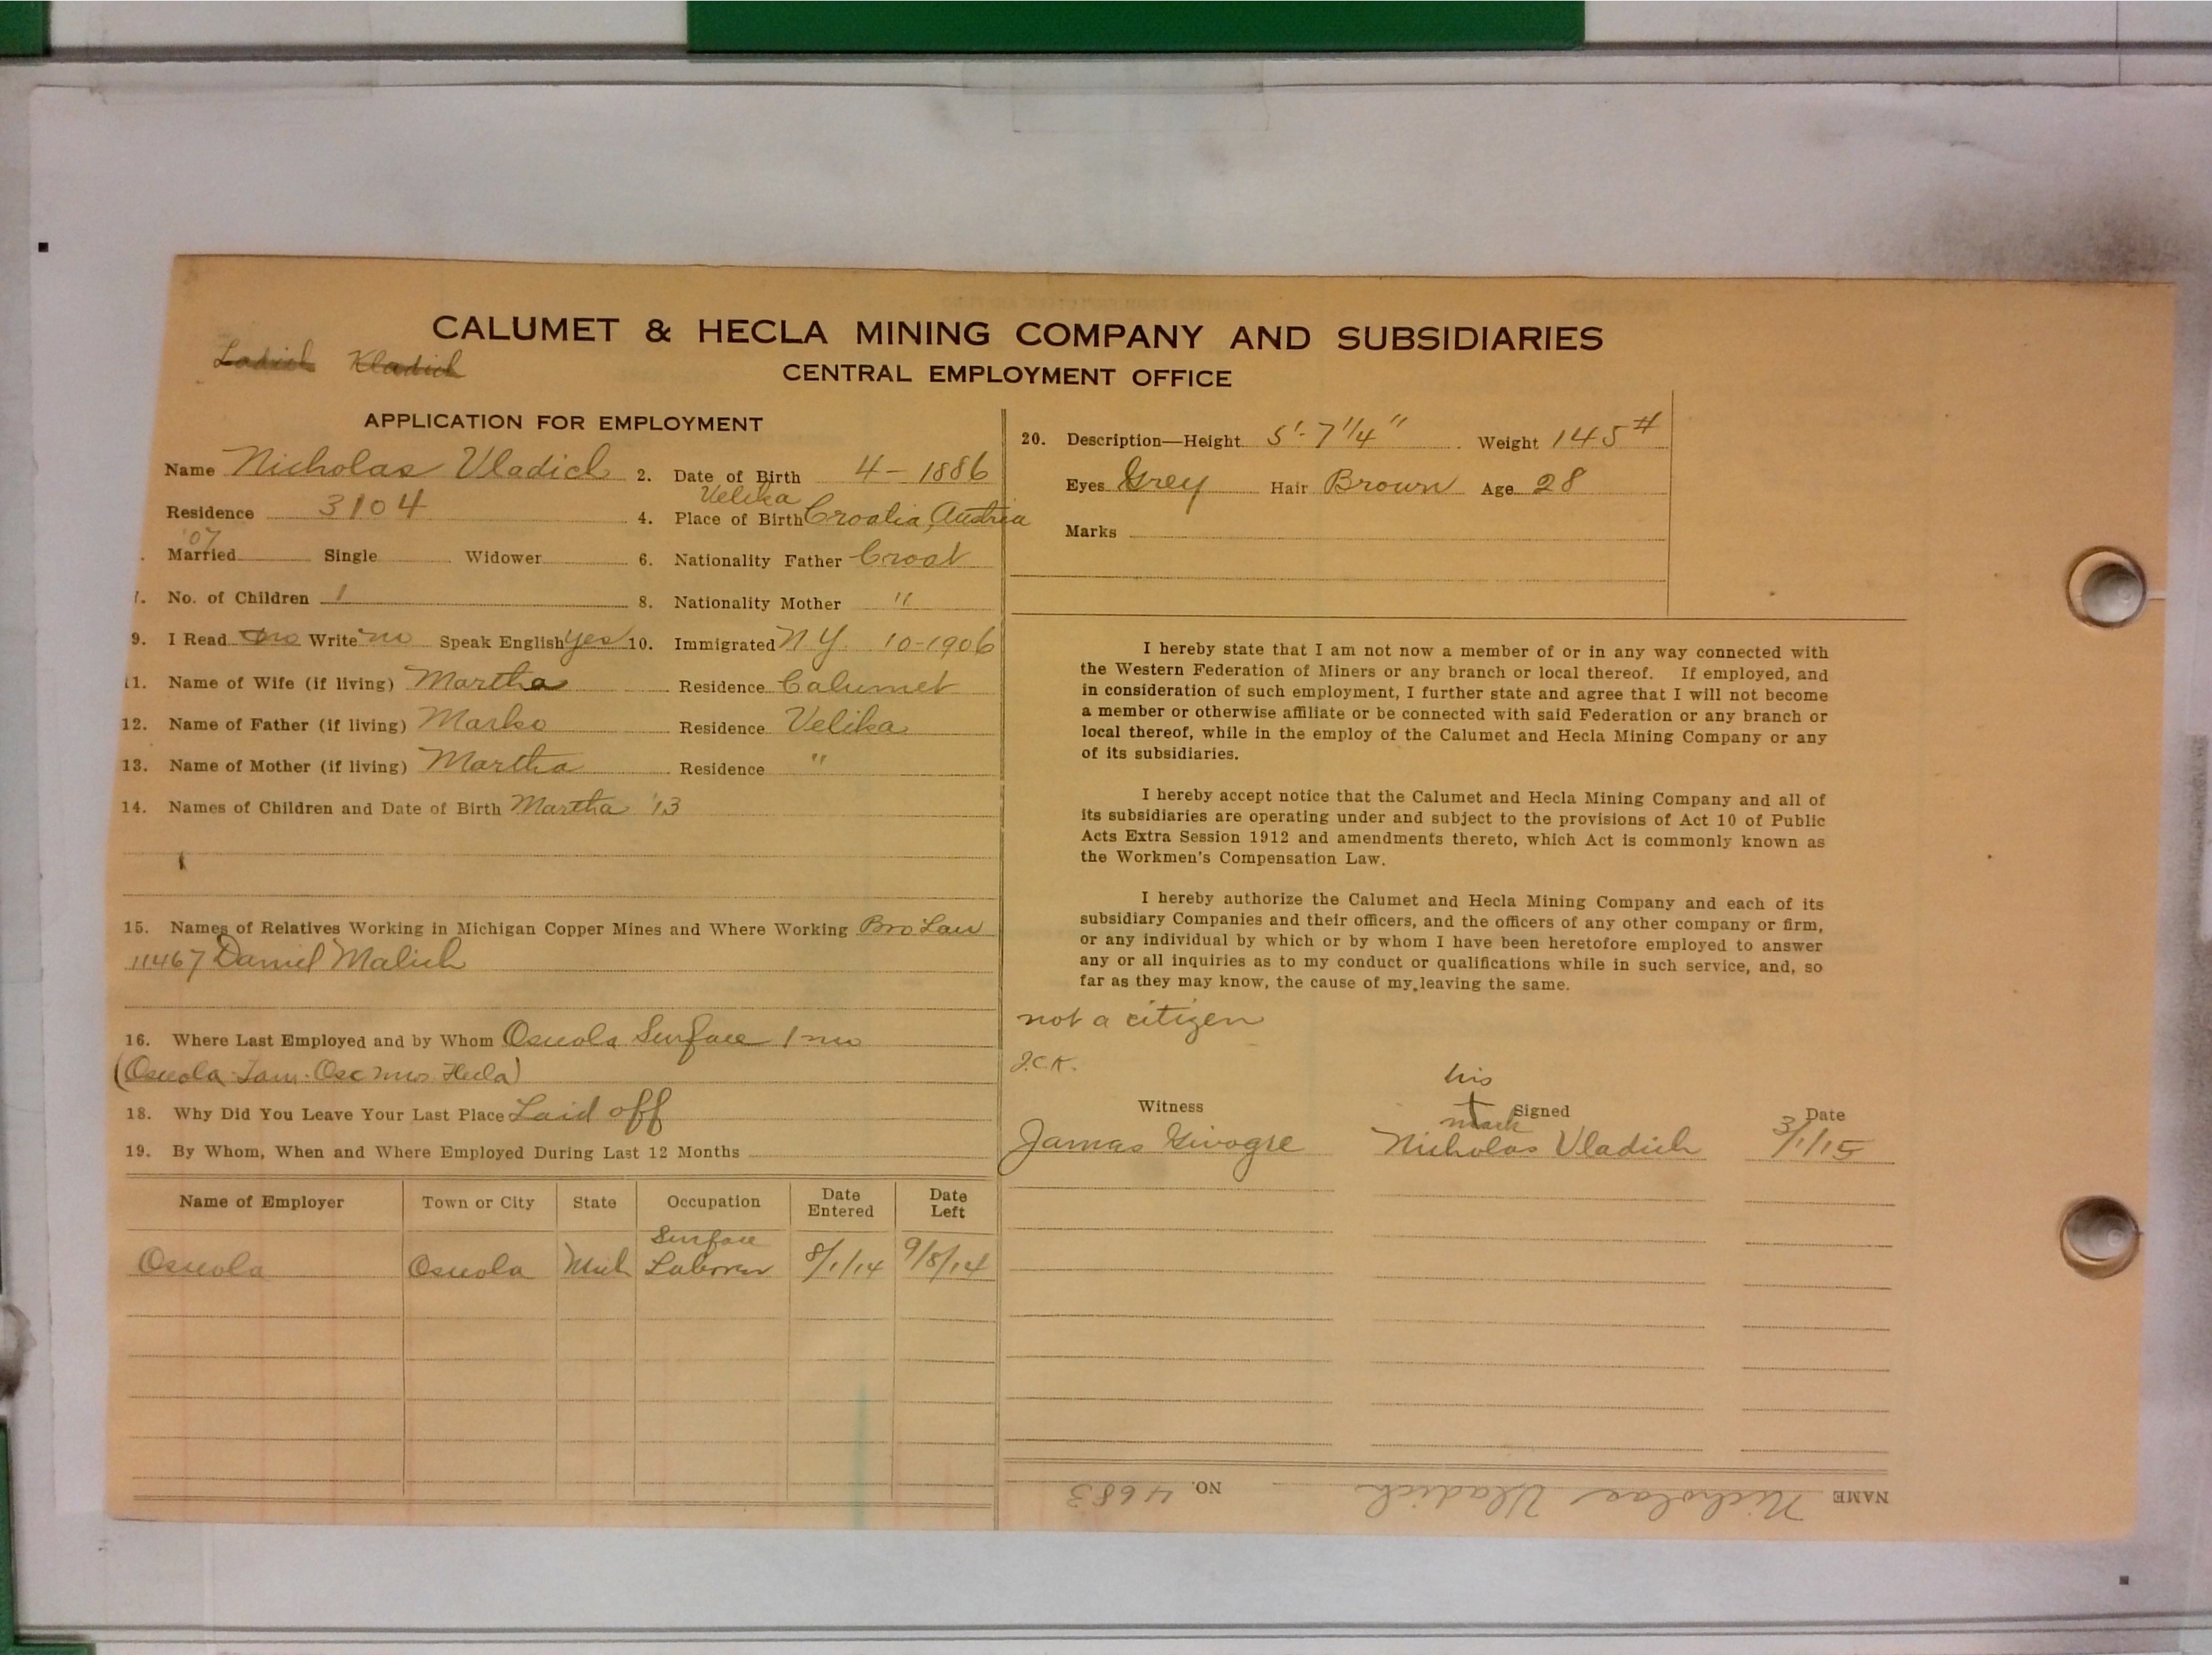 CALUMET & HECLA MINING COMPANY AND SUBSIDIARIES
Ladich Kladich
CENTRAL EMPLOYMENT OFFICE
APPLICATION FOR EMPLOYMENT
Name Nicholas Vladich 2. Date of Birth 4-1886
Residence 3104
Velika
4. Place of Birth Croatia, Austria
'07
Married Single Widower 6. Nationality Father Croat
7. No. of Children 1 8. Nationality Mother "
9. I Read no Write no Speak English yes 10. Immigrated N.Y. 10-1906
11. Name of Wife (if living) Martha Residence Calumet
12. Name of Father (if living) Marko Residence Velika
13. Name of Mother (if living) Martha Residence "
14. Names of Children and Date of Birth Martha '13
15. Names of Relatives Working in Michigan Copper Mines and Where Working Bro Law
11467 Daniel Malich
16. Where Last Employed and by Whom Osceola Surface 1 mo
(Osceola Tam. Osc Hecla)
18. Why Did You Leave Your Last Place Laid off
19. By Whom, When and Where Employed During Last 12 Months
Name of Employer Town or City State Occupation Date Entered Date Left
Surface
Osceola Osceola Mich Laborer 8/1/14 9/8/14
20. Description—Height 5'-7 1/4" Weight 145#
Eyes Grey Hair Brown Age 28
Marks
I hereby state that I am not now a member of or in any way connected with
the Western Federation of Miners or any branch or local thereof. If employed, and
in consideration of such employment, I further state and agree that I will not become
a member or otherwise affiliate or be connected with said Federation or any branch or
local thereof, while in the employ of the Calumet and Hecla Mining Company or any
of its subsidiaries.
I hereby accept notice that the Calumet and Hecla Mining Company and all of
its subsidiaries are operating under and subject to the provisions of Act 10 of Public
Acts Extra Session 1912 and amendments thereto, which Act is commonly known as
the Workmen's Compensation Law.
I hereby authorize the Calumet and Hecla Mining Company and each of its
subsidiary Companies and their officers, and the officers of any other company or firm,
or any individual by which or by whom I have been heretofore employed to answer
any or all inquiries as to my conduct or qualifications while in such service, and, so
far as they may know, the cause of my leaving the same.
not a citizen
J.C.K.
his
Witness Signed Date
mark
James Nicholas Vladich 3/1/15
NAME Nicholas Vladich NO. 4683